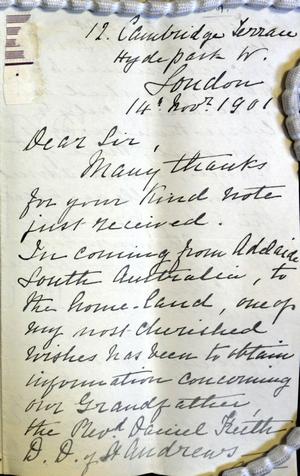 12. Cambridge Terrace
Hyde Park W.
London
14th Novr. 1901
Dear Sir,
Many thanks
for your kind note
just received.
In coming from Adelaide
South Australia, to
the home-land, one of
my most cherished
wishes has been to obtain
information concerning
our Grandfather,
the Revd Daniel Keith
D. D. of St Andrews